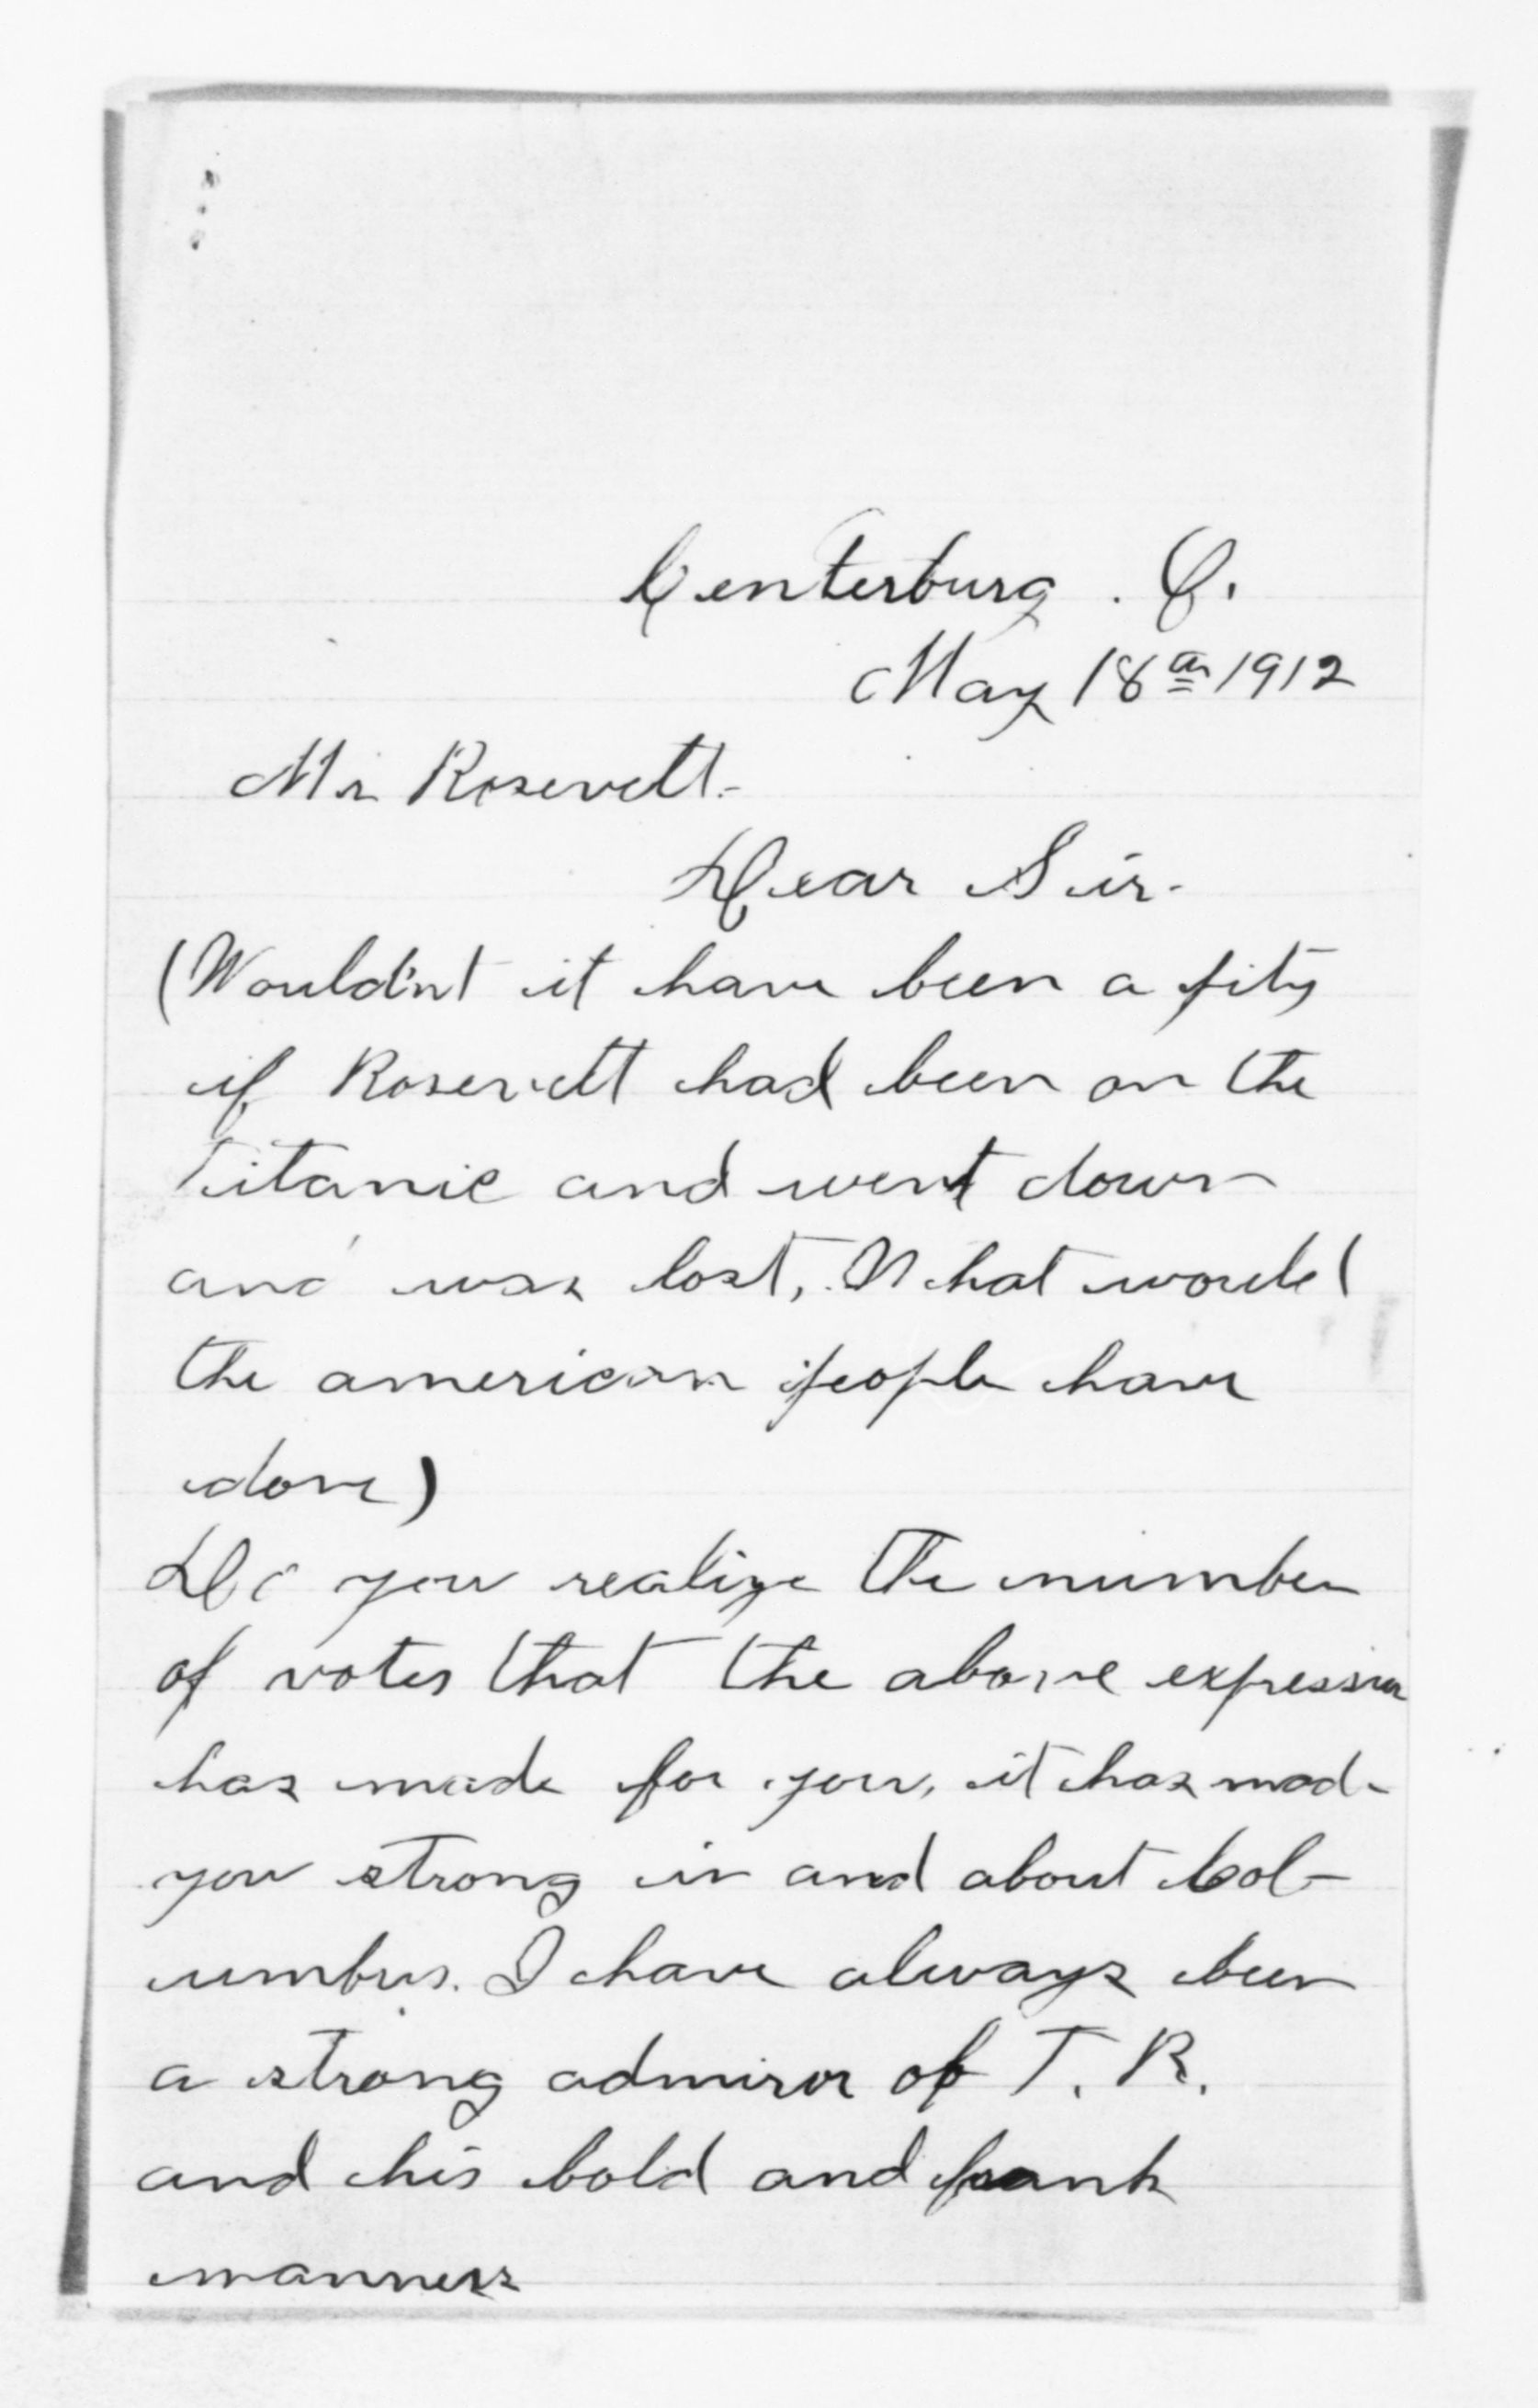 Centerburg. O.
May 18th 1912
Mr Rosevelt-
Dear Sir-
(Would'nt it have been a pity
if Rosevelt had been on the
Titanic and went down
and was lost, What would
the american people have
done)
Do you realize the number
of votes that the above expression
has made for you, it has made
you strong in and about Col-
umbus. I have always been
a strong admiror of T. R.
and his bold and frank
manners